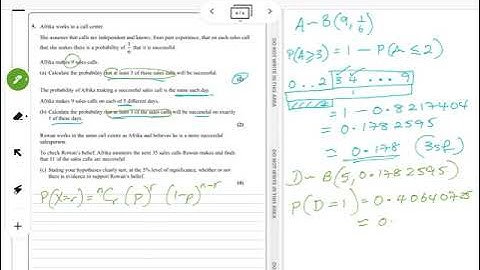 4. Afrika works in a call centre.
She assumes that calls are independent and knows, from past experience, that on each sales call
that she makes there is a probability of 1/6 that it is successful.
Afrika makes 9 sales calls.
(a) Calculate the probability that at least 3 of these sales calls will be successful.
(2)
The probability of Afrika making a successful sales call is the same each day.
Afrika makes 9 sales calls on each of 5 different days.
(b) Calculate the probability that at least 3 of the sales calls will be successful on exactly
1 of these days.
(2)
Rowan works in the same call centre as Afrika and believes he is a more successful
salesperson.
To check Rowan's belief, Afrika monitors the next 35 sales calls Rowan makes and finds
that 11 of the sales calls are successful.
(c) Stating your hypotheses clearly test, at the 5% level of significance, whether or not
there is evidence to support Rowan's belief.
(4)
P(X=r) = ⁿCᵣ (p)ʳ (1-p)ⁿ⁻ʳ
DO NOT WRITE IN THIS AREA
DO NOT WRITE IN THIS AREA
A~B(9, 1/6)
P(A≥3) = 1 - P(A ≤ 2)
0 .. 2 3 4 .... 9
1
= 1 - 0.8217404
= 0.1782595
= 0.178 (3sf)
D~B(5, 0.1782595)
P(D=1) = 0.40640725
= 0.